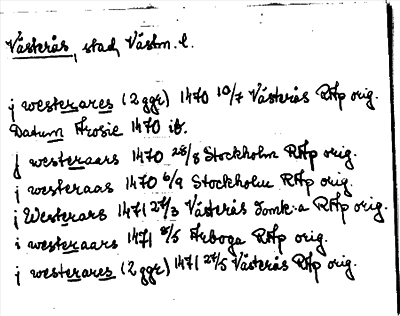 Västerås, stad, Västm. l.
j westerares (2 ggr) 1470 10/7 Västerås RAp orig.
Datum Arosie 1470 ib.
j westeraars 1470 28/8 Stockholm RAp orig.
j westeraas 1470 6/9 Stockholm RAp orig.
j Westerars 1471 27/3 Västerås Domk:a RAp orig.
i westeraars 1471 8/5 Arboga RAp orig.
j westerares (2 ggr) 1471 27/5 Västerås RAp orig.